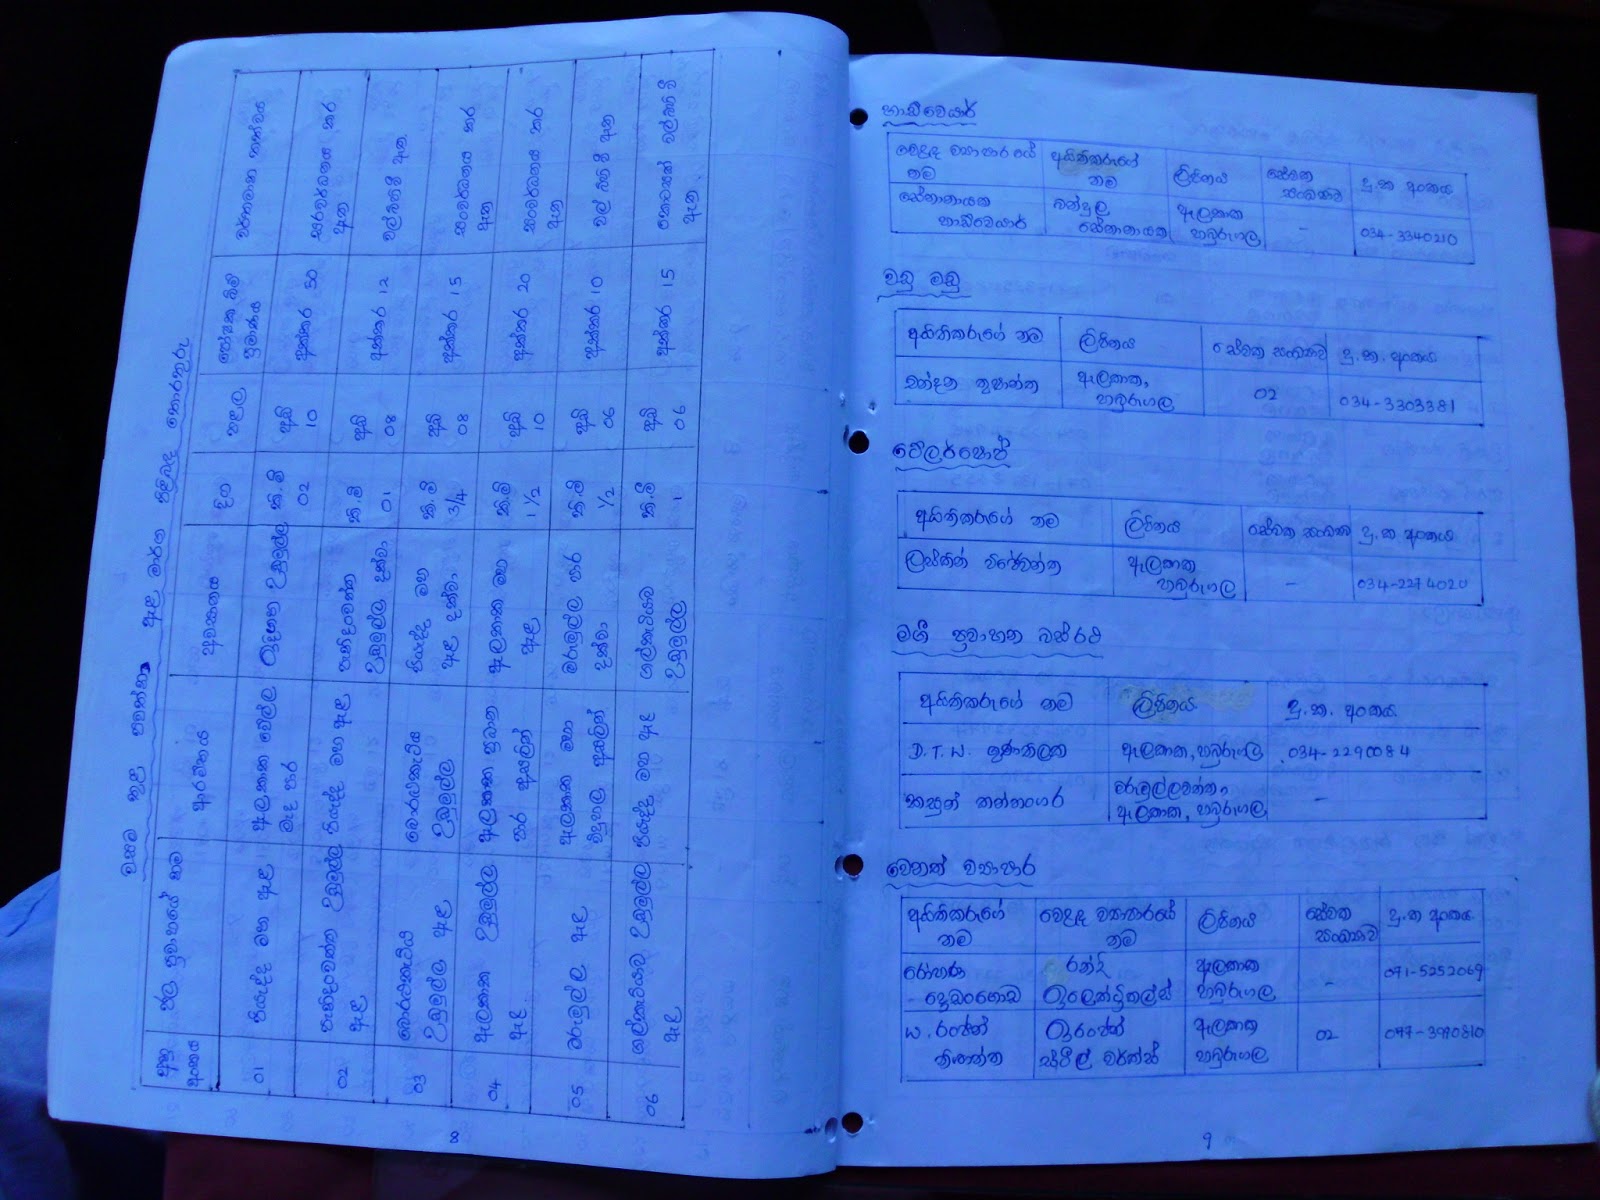 වසම තුළ පවත්නා ඇළ මාර්ග පිළිබඳ තොරතුරු
අනු අංකය | ජල ප්‍රවාහයේ නම | ආරම්භය | අවසානය | දිග | පළල | පෝෂක බිම් ප්‍රමාණය | වර්තමාන තත්වය
01 | පියැද්ද මහ ඇළ | ඇලකාක වෙල්ල මැද පාර | උඩුමුල්ල | කි.මී 02 | අඩි 10 | අක්කර 50 | කර ඇත
02 | උඩුමුල්ල ඇළ | පියැද්ද මහ ඇළ | උඩුමුල්ල දක්වා | කි.මී 01 | අඩි 08 | අක්කර 12 | වල් බිහි වී ඇත
03 | උඩුමුල්ල ඇළ | උඩුමුල්ල | පියැද්ද මහ ඇළ දක්වා | කි.මී 3/4 | අඩි 08 | අක්කර 15 | සංවර්ධනය කර ඇත
04 | ඇලකාක උඩුමුල්ල ඇළ | ඇලකාක ප්‍රධාන පාර අසලින් | ඇලකාක මහ ඇළ | කි.මී 1 1/2 | අඩි 10 | අක්කර 20 | සංවර්ධනය කර ඇත
05 | මරුමුල්ල ඇළ | ඇලකාක මහා විදුහල අසලින් | මරුමුල්ල පාර දක්වා | කි.මී 1/2 | අඩි 06 | අක්කර 10 | වල් බිහි වී ඇත
06 | උඩුමුල්ල ඇළ | පියැද්ද මහ ඇළ | උඩුමුල්ල | කි.මී 1 | අඩි 06 | අක්කර 15 | කොටසක් වල් බිහි වී ඇත
8
හාඩ්වෙයාර්
වෙළඳ ව්‍යාපාරයේ නම | අයිතිකරුගේ නම | ලිපිනය | සේවක සංඛ්‍යාව | දු.ක අංකය
සේනානායක හාඩ්වෙයාර් | බන්දුල සේනානායක | ඇලකාක හබුරුගල | - | 034-3340210
වඩු මඩු
අයිතිකරුගේ නම | ලිපිනය | සේවක සංඛ්‍යාව | දු.ක. අංකය
චන්දන තුෂාන්ත | ඇලකාක, හබුරුගල | 02 | 034-3303381
ටේලර්ෂොප්
අයිතිකරුගේ නම | ලිපිනය | සේවක සංඛ්‍යාව | දු.ක අංකය
ලස්කින් විජේවන්ත | ඇලකාක හබුරුගල | - | 034-2274020
මගී ප්‍රවාහන බස්රථ
අයිතිකරුගේ නම | ලිපිනය | දු.ක. අංකය
D.T.W. ගුණතිලක | ඇලකාක, හබුරුගල | 034-2290084
කසුන් කන්නංගර | මරුමුල්ලවත්ත, ඇලකාක, හබුරුගල | -
වෙනත් ව්‍යාපාර
අයිතිකරුගේ නම | වෙළඳ ව්‍යාපාරයේ නම | ලිපිනය | සේවක සංඛ්‍යාව | දු.ක අංකය
රෝහණ දොඩංගොඩ | රන්දි ඉලෙක්ට්‍රිකල්ස් | ඇලකාක හබුරුගල | - | 071-5252069
W. රංජන් නිශාන්ත | රංජන් ස්ටීල් වර්ක්ස් | ඇලකාක හබුරුගල | 02 | 077-3970810
9